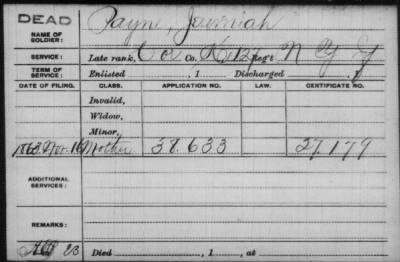 DEAD
NAME OF SOLDIER: Payne, Jeremiah
SERVICE: Late rank, Co. Reg't N Y
TERM OF SERVICE: Enlisted , 1 Discharged , 1
DATE OF FILING. CLASS. APPLICATION NO. LAW. CERTIFICATE NO.
Invalid,
Widow,
Minor,
1863 Nov. 16 Mother 38.633 27.179
ADDITIONAL SERVICES:
REMARKS:
Died , 1 , at